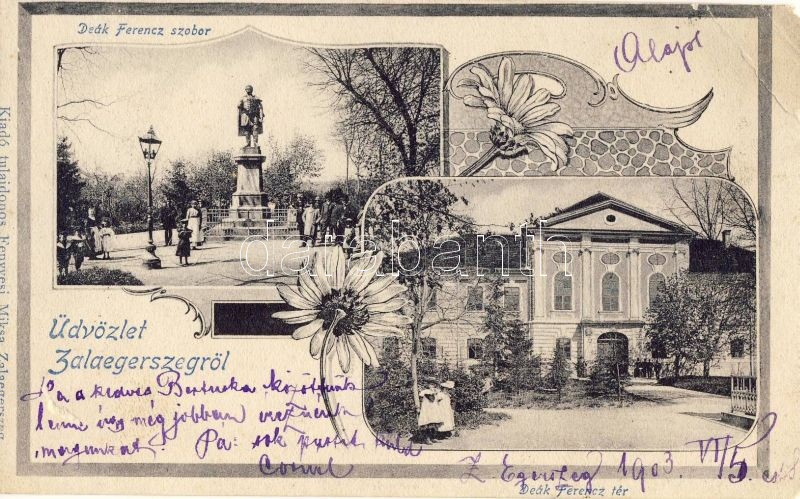 Deák Ferencz szobor
Alajos
Kiadó tulajdonos Fenyvesi Miksa Zalaegerszeg
darabanth
Üdvözlet
Zalaegerszegről
Ha a kedves Bertuska köztünk
lenne úgy még jobban éreznénk
magunkat. Pá: sok puszit küld
Z. Egerszeg 1903. VII/5.
Deák Ferencz tér